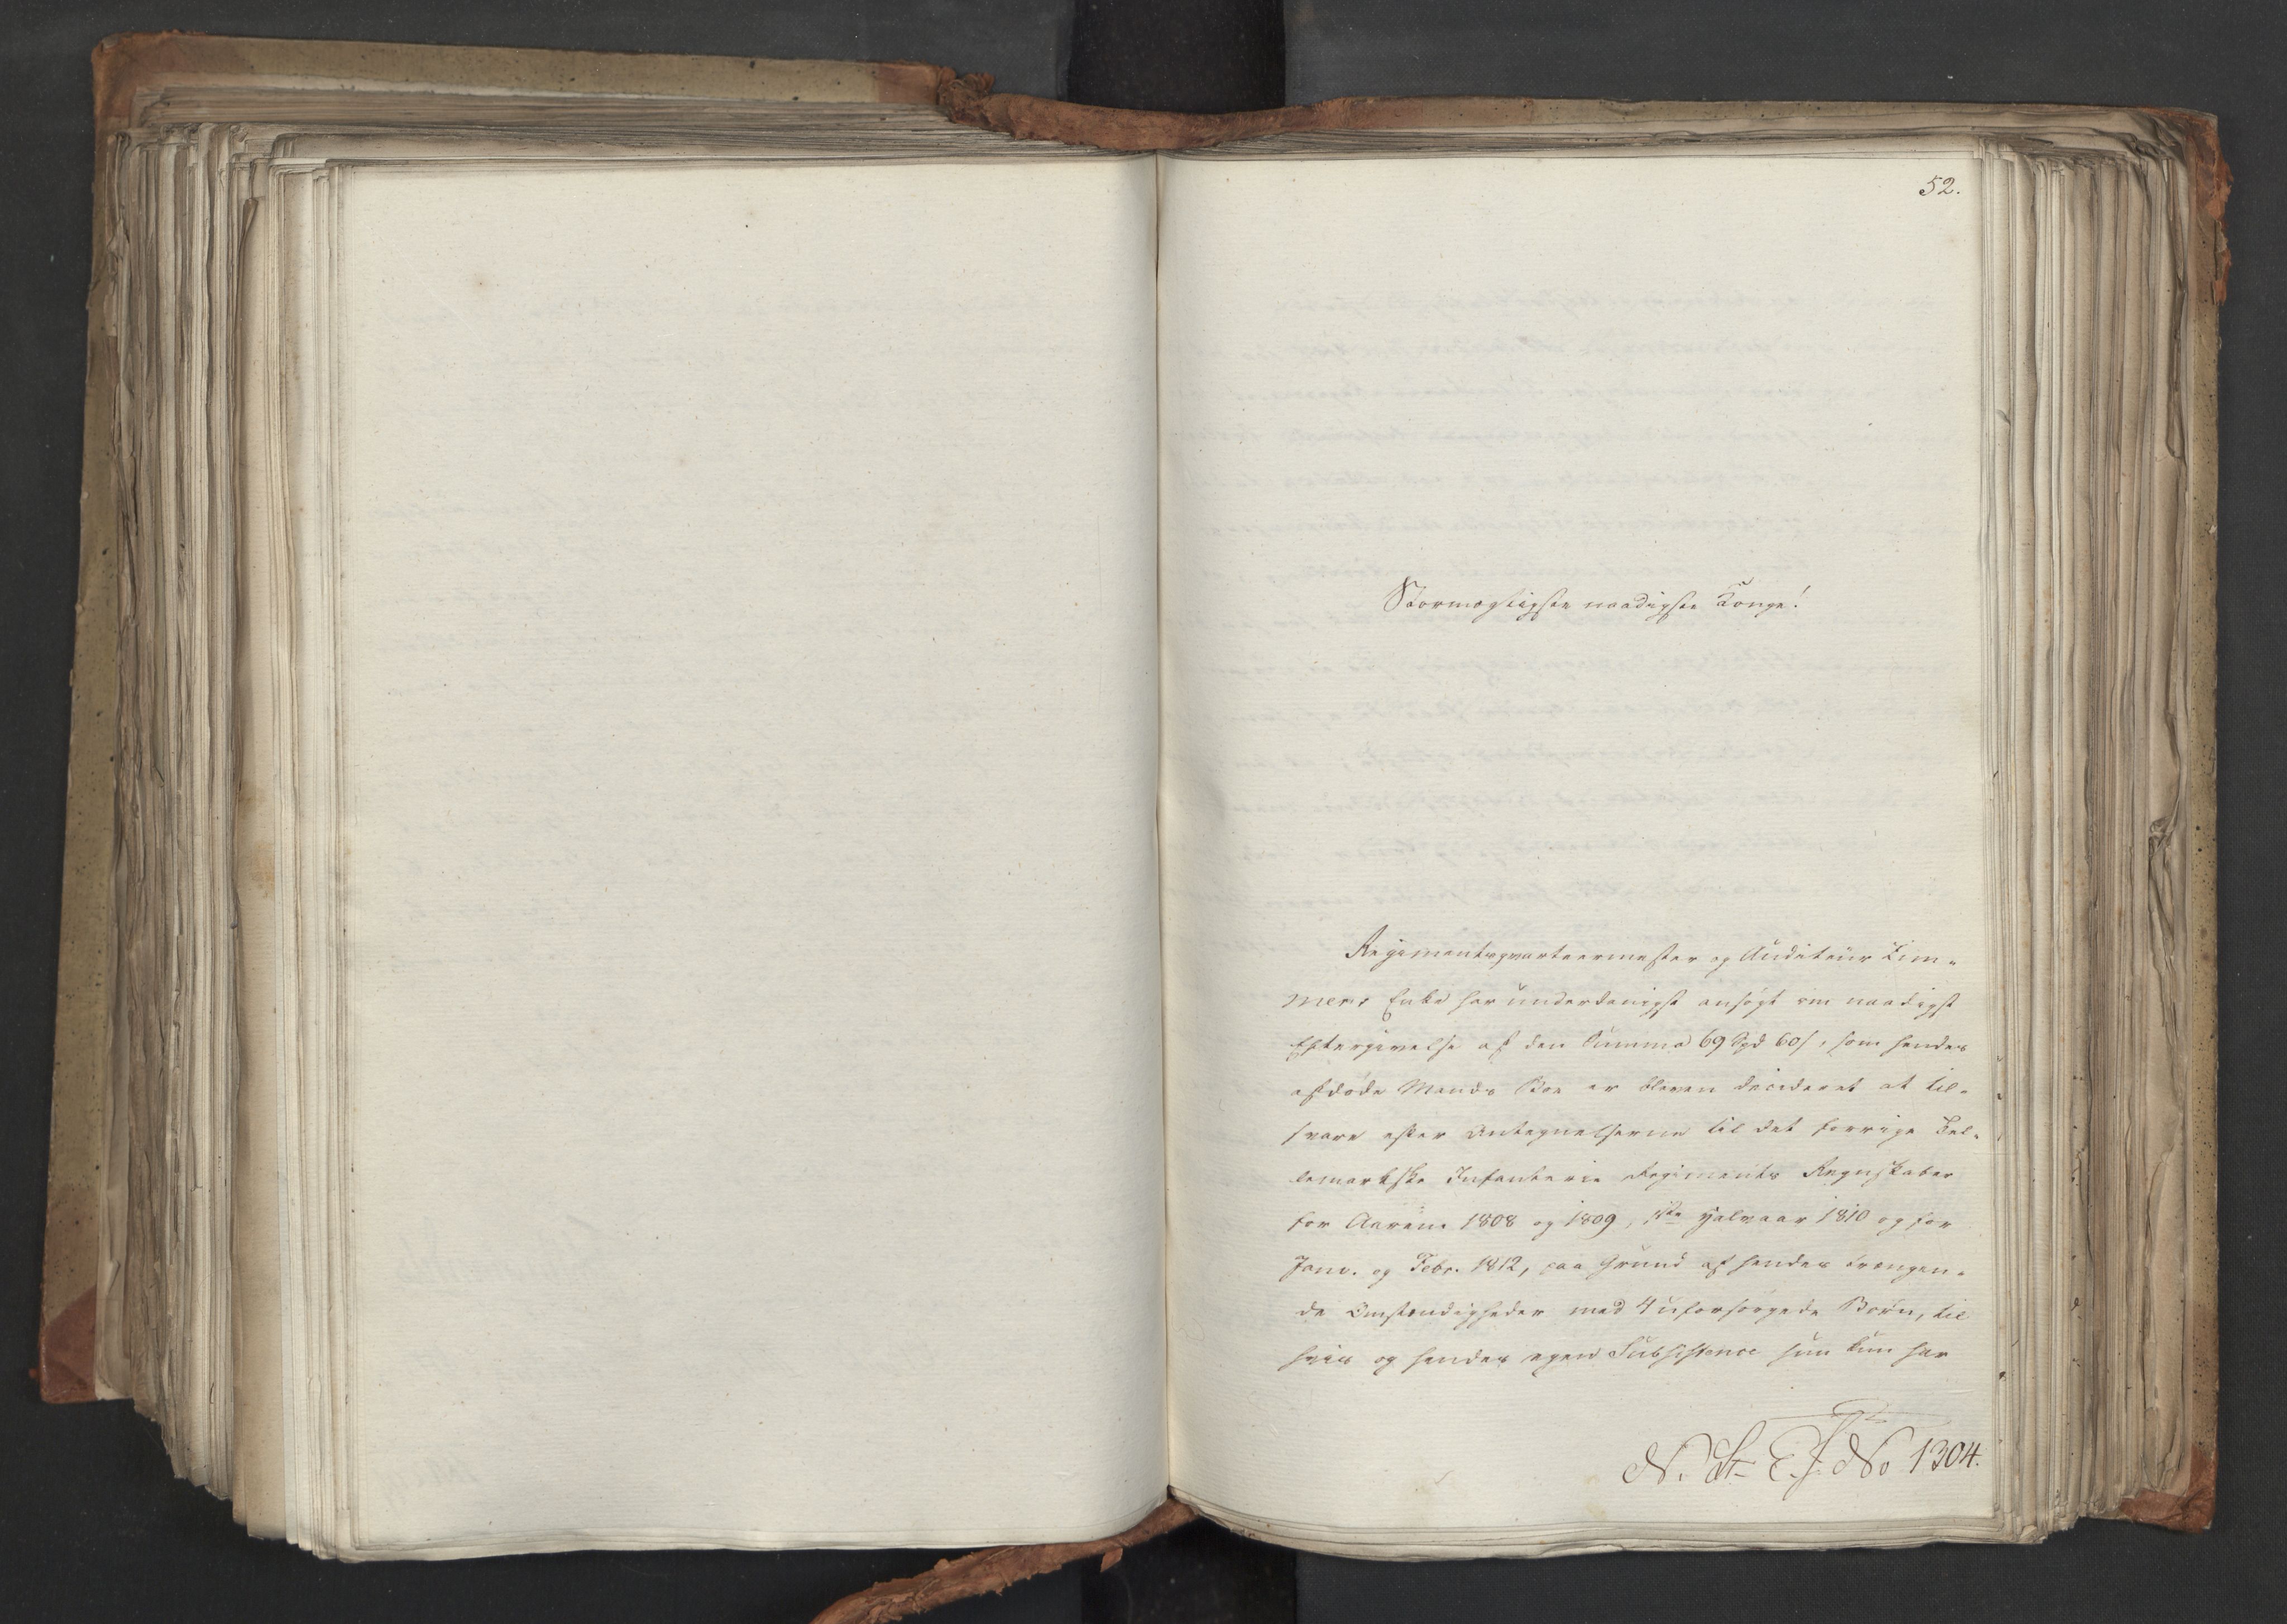 52.
Stormægtigste naadigste Konge!
Regimentsqvarteermester og Auditeur Tim-
mers Enke har underdanigst ansøgt om naadigst
Eftergivelse af den Summa 69 Spd 60 s, som hendes
afdøde Mands Boe er bleven decideret at til-
svare efter Antegnelserne til det forrige Tel-
lemarkske Infanterie Regiments Regnskaber
for Aarene 1808 og 1809, 1ste Halvaar 1810 og for
Janv. og Febr. 1812, paa Grund af hendes trængen-
de Omstændigheder med 4 uforsørgede Børn, til
hvis og hendes egen Subsistence hun kun har
N. St. E. J. No 1304.